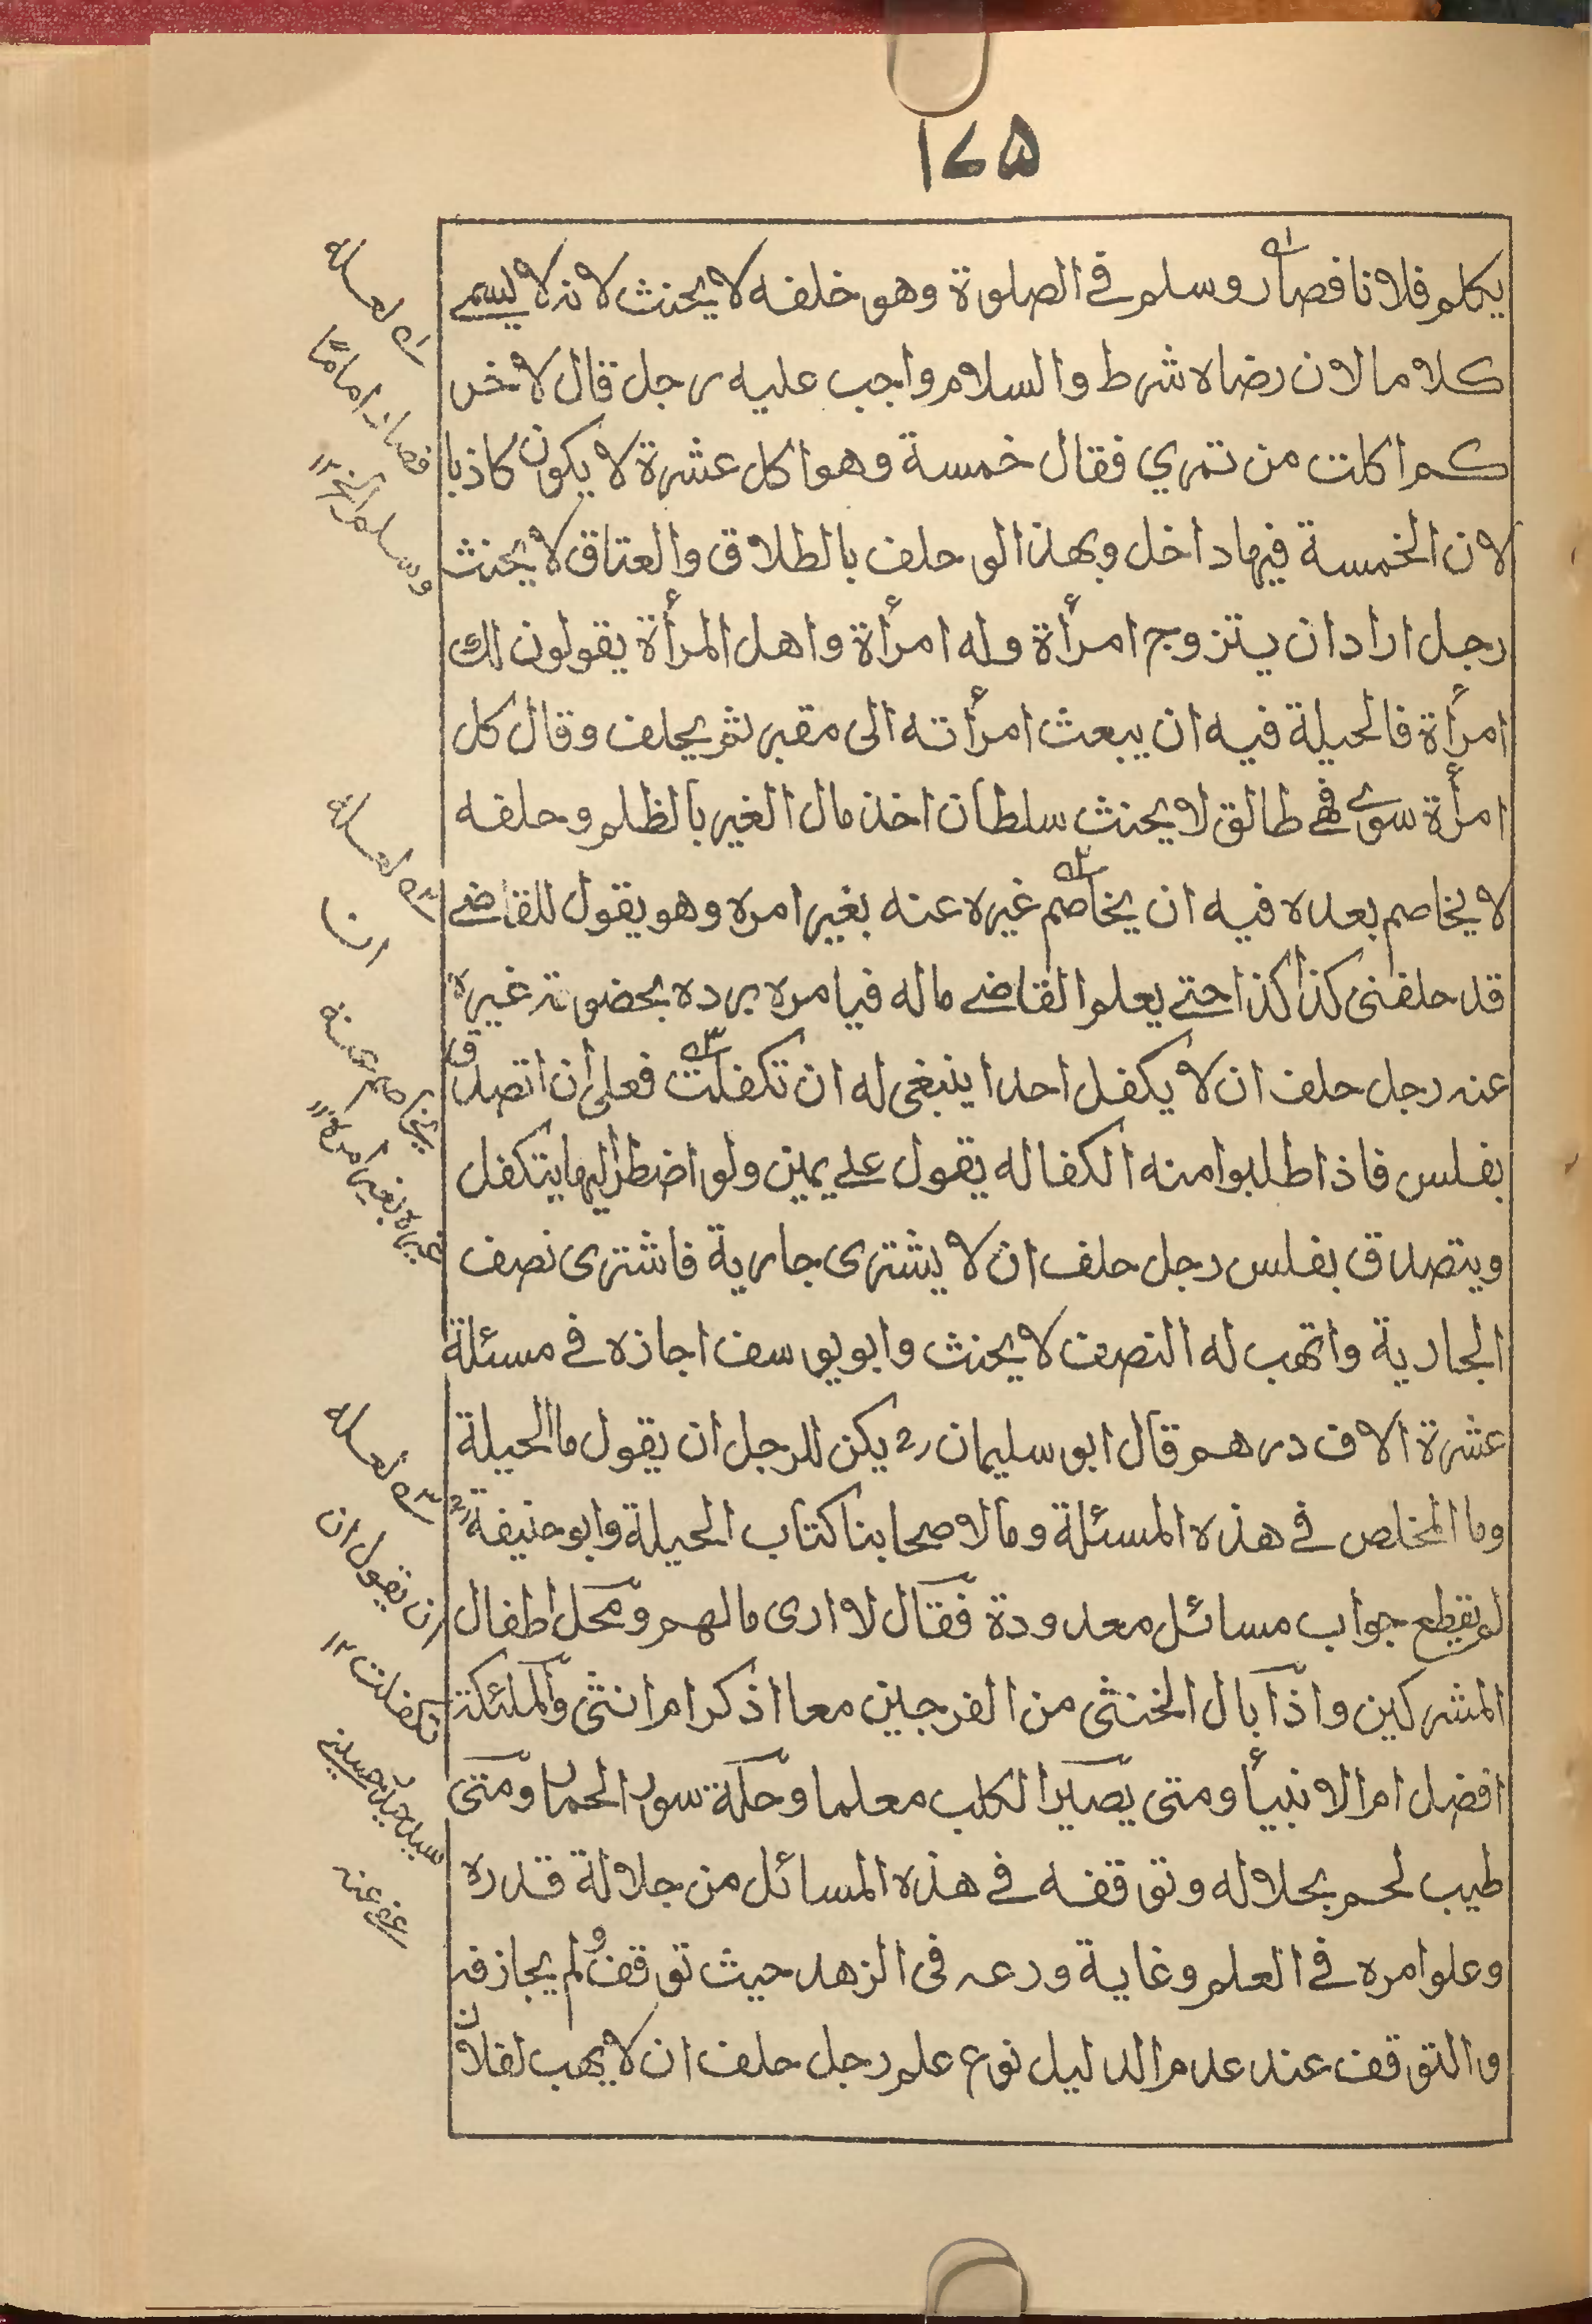 ١٧٥
يكلم فلانا فصار وسلم في الصلوة وهو خلفه لا يحنث لانه لا يسمے
كلاما لان رضاه شرط والسلام واجب عليه رجل قال لاخر
كم اكلت من تمري فقال خمسة وهو اكل عشرة لا يكون كاذبا
لان الخمسة فيها داخل وبهذا لو حلف بالطلاق والعتاق لا يحنث
رجل اراد ان يتزوج امرأة وله امرأة واهل المرأة يقولون لك
امرأة فالحيلة فيه ان يبعث امرأته الى مقبر ثم يحلف وقال كل
امرأة سوے فهے طالق لا يحنث سلطان اخذ مال الغير بالظلم وحلفه
لا يخاصم بعده فيه ان يخاصم غيره عنه بغير امره وهو يقول للقاضے
قد حلفنى كذا كذا حتے يعلم القاضے ماله فيامره برده بحضوته غيره
عنه رجل حلف ان لا يكفل احدا ينبغى له ان تكفلت فعلى ان اتصدق
بفلس فاذا طلبوا منه الكفاله يقول علے يمين ولو اضطر اليها يتكفل
ويتصدق بفلس رجل حلف ان لا يشترى جارية فاشترى نصف
الجارية واتهب له النصف لا يحنث وابو يوسف اجازه فے مسئلة
عشرة الاف درهم قال ابو سليمان رح يكن للرجل ان يقول ما الحيلة
وما المخلص فے هذه المسئلة وما لاصحابنا كتاب الحيلة وابو حنيفة رح
لم يقطع جواب مسائل معدودة فقال لا ارى مالهم ومحل اطفال
المشركين واذا بال الخنثى من الفرجين معا اذكر ام انثى والملئكة
افضل ام الانبيأ ومتى يصير الكلب معلما وحكة سور الحمار ومتى
طيب لحم بحلاله وتوقفه فے هذه المسائل من جلالة قدره
وعلو امره فے العلم وغاية ورعه فى الزهد حيث توقف ولم يجازف
والتوقف عند عدم الدليل نوع علم رجل حلف ان لا يهب لفلان
له لعله
فصار اماما
وسلم الخ ١٢
٢ه لعله
ان
يخاصم عنه
غيره بغير امره ١٢
٣ه لعله
ان يقول ان
تكفلت ١٢
عفے عنه